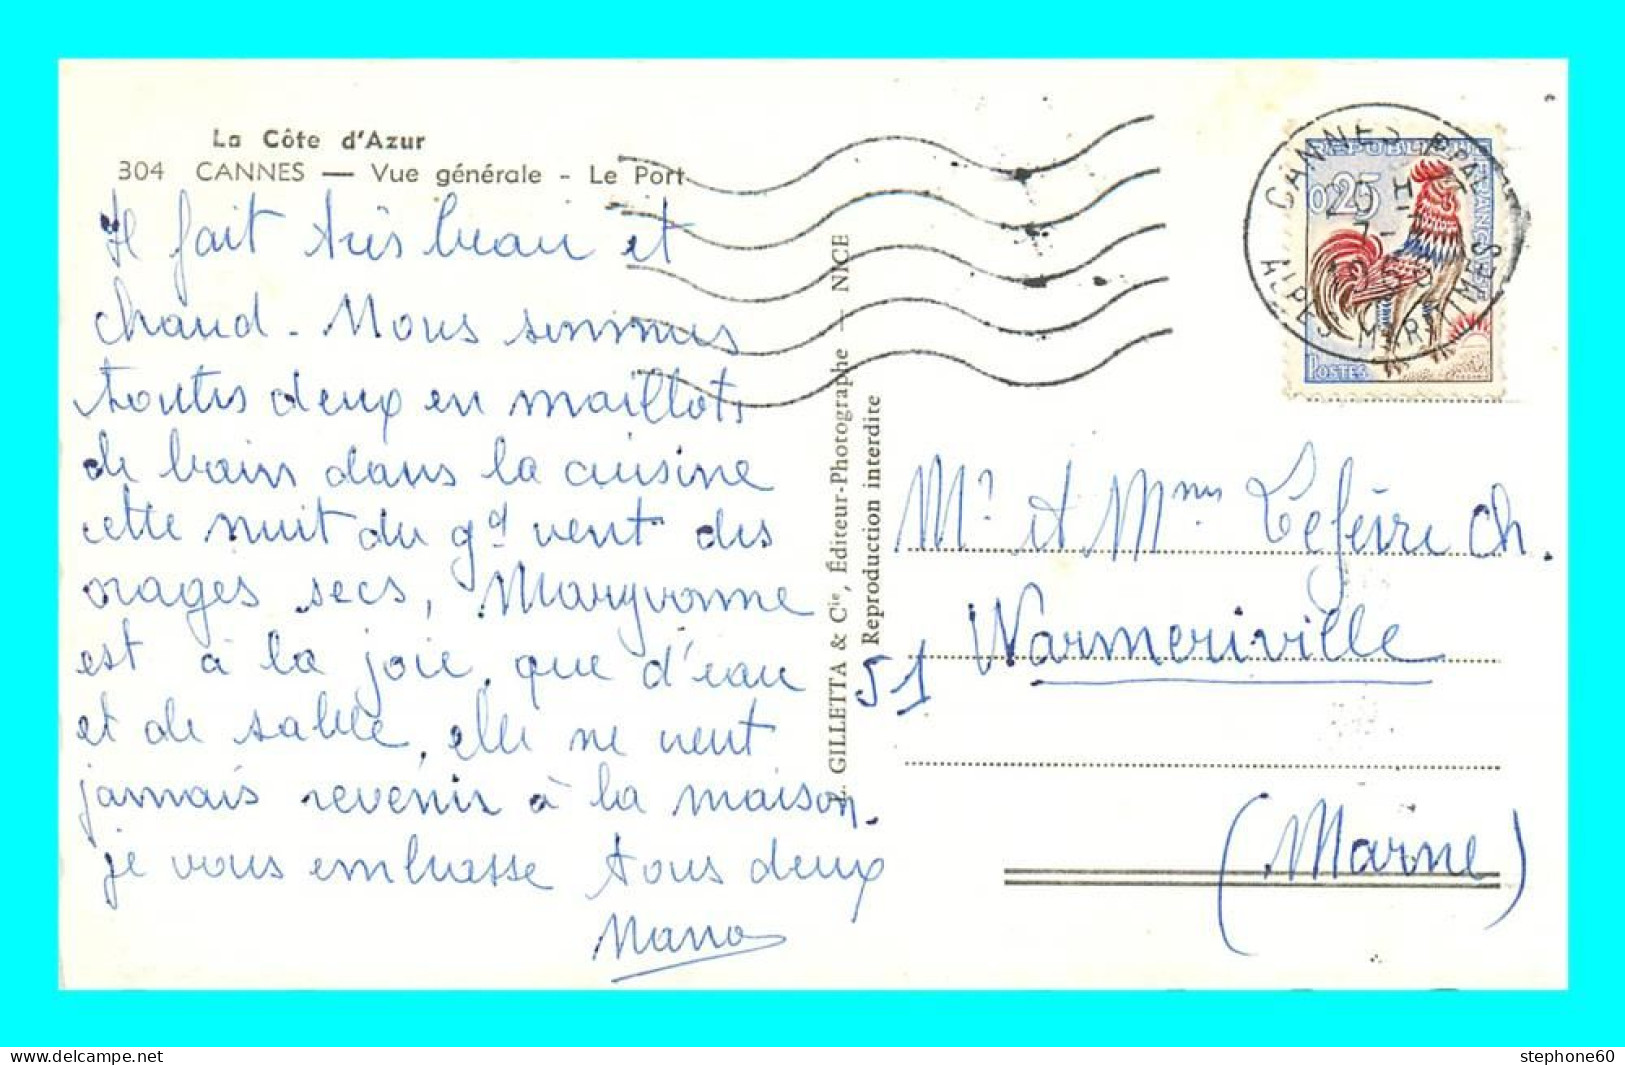 La Côte d'Azur
304 CANNES — Vue générale - Le Port
Il fait très beau et
chaud - Nous sommes
toutes deux en maillots
de bain dans la cuisine
cette nuit du gd vent des
orages secs, Maryvonne
est à la joie, que d'eau
et de sable, elle ne veut
jamais revenir à la maison.
je vous embrasse tous deux
Nano
L. GILLETTA & Cie, Éditeur-Photographe — NICE
Reproduction interdite
CANNES PPAL
ALPES MARITIMES
20 H
RÉPUBLIQUE FRANÇAISE
0,25
POSTES
Mr et Mme Lefèvre Ch.
51 Warmeriville
(Marne)
stephone60